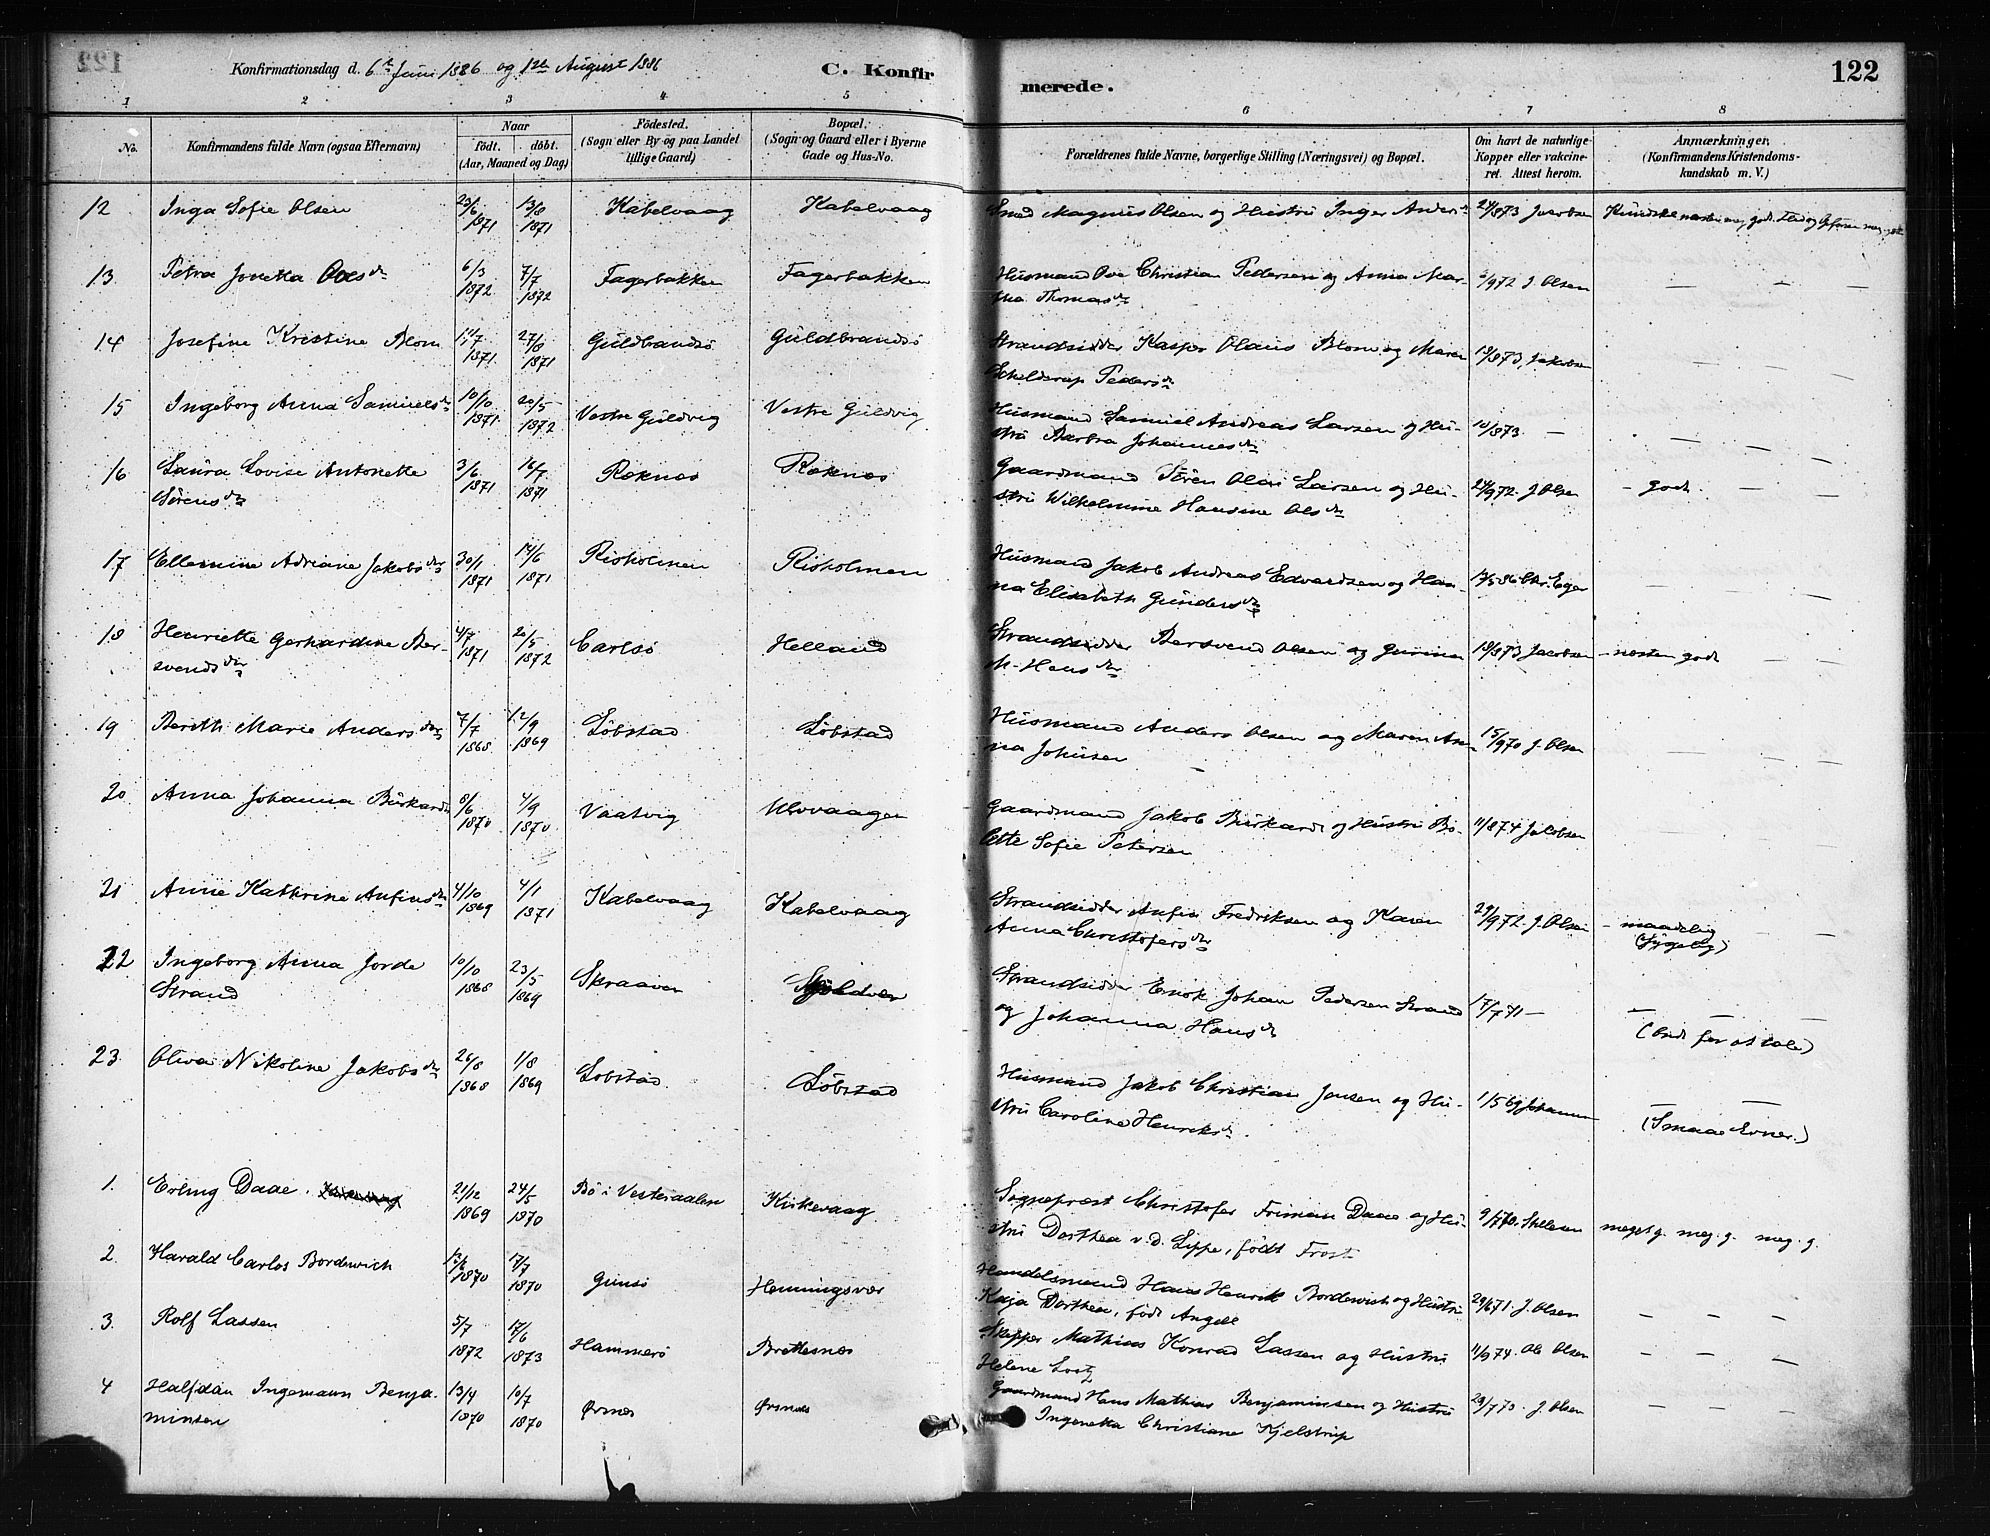 Konfirmationsdag d. 6te Juni 1886 og 1ste August 1886 C. Konfirmerede. 122
1 2 3 4 5 6 7 8
No. Konfirmandens fulde Navn (ogsaa Efternavn) Naar født. døbt. (Aar, Maaned og Dag) Födested. (Sogn eller By og paa Landet tillige Gaard) Bopæl. (Sogn og Gaard eller i Byerne Gade og Hus-No. Forældrenes fulde Navne, borgerlige Stilling (Næringsvei) og Bopæl. Om havt de naturlige Kopper eller vakcineret. Attest herom. Anmærkninger. (Konfirmandens Kristendomskundskab m. V.)
12 Inga Sofie Olsen 23/6 1871 13/8 1871 Kabelvaag Kabelvaag Smed Magnus Olsen og Hustru Inger Andersdr 24/873 Jacobsen
13. Petra Jonetta Olesdr 6/3 1872 7/7 1872 Fagerbakken Fagerbakken Husmand Ove Christian Pedersen og Anna Mar-
tha Thomasdr /972 J. Olsen — — —
14 Josefine Kristine Blom 11/7 1871. 27/8 1871 Guldbrandsö Guldbrandsö Strandsidder Kasper Olaus Blom og Maren
Schelderup Pedersdr 19/873, Jakobsen — — —
15 Ingeborg Anna Samuelsdr 10/10 1871. 20/5 1872 Vestre Guldvig Vestre Guldvig Husmand Samuel Andreas Larsen og Hu-
stru Barbra Johannesdr 10/873. — — — —
16 Laura Lovise Antonette 3/6 1871 16/7 1871 Röknes Röknes Gaardmand Sören Olai Larsen og Hu-
Sörensdr stru Wilhelmine Hansine Olsdr 24/972. J. Olsen — godt — —
17 Ellemine Adriane Jakobsdr 30/1 1871 14/6 1871 Risholmen Risholmen Husmand Jakob Andreas Edvardsen og Han-
na Elisabeth Gundersdr 17/586 Chr. Eger — — —
18 Henriette Gerhardine Ber- 4/7 1871 20/5 1872 Carlsö Helland Strandsidder Bersvend Olsen og Gurina
svendsdr M. Hansdr 19/873 Jacobsen — næsten godt — —
19 Berith Marie Andersdr 7/7 1868 12/9 1869 Löbstad Löbstad Husmand Anders Olsen og Maren An-
na Johnsen 15/970 J. Olsen — — —
20 Anna Johanna Burkardt 8/6 1870 4/9 1870. Vaatvig Ulvvaagen Gaardmand Jakob Burkardt og Hustru Bo-
lette Sofie Petersen 11/874 Jakobsen — — —
21 Anne Kathrine Anfinsdr 4/10 1869 4/1 1871 Kabelvaag Kabelvaag Strandsidder Anfin Fredriksen og Karen
Anna Christofersdr 29/972. J. Olsen — maadelig — —
(Sygelig)
22 Ingeborg Anna Jorde 10/10 1868 23/5 1869 Skraaven Strandsidder Enok Johan Pedersen Strand
Strand og Johanna Hansdr 17/771 — — — —
(bedt for at tale)
23. Oliva Nikoline Jakobsdr 26/8 1868 1/8 1869 Lobstad Löbstad Husmand Jakob Christian Jensen og Hu-
stru Caroline Henriksdr. 1/569 Johannes — —
(Smaae Evner.)
1. Erling Daae. 21/12 1869 24/5 1870 Bö i Vesteraalen Kirkevaag Sogneprest Christofer Friman Daae og Hu-
stru Dorthea v. d. Lippe, født Frost 9/770. meget g. meg. g. meg. g.
2. Harald Carlos Bordewich 12/2 1870 17/7 1870 Gimsö Henningsvær Handelsmand Hans Henrik Bordewich og Hustru
Kaja Dorthea, født Angell 29/671 J. Olsen — — —
3. Rolf Lassen 5/7 1872 17/6 1873 Hammerö Brettesnes Skipper Mathias Konrad Lassen og Hustru
Helene Lootz 11/974. Ob Olsen — — —
4 Halfdan Ingemann Benja- 13/4 1870 10/7 1870 Ørsnes Ørsnes Gaardmand Hans Mathias Benjaminsen og Hustru
minsen Ingenetta Christiane Kjelstrup 29/773. J. Olsen — — —